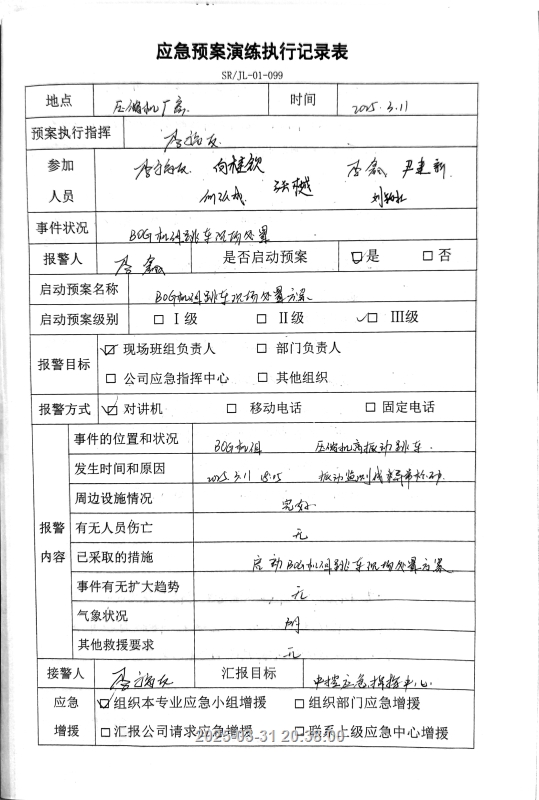 应急预案演练执行记录表
SR/JL-01-099
地点 压缩机厂房 时间 2025.3.11
预案执行指挥
参加 向继钦 李鑫 尹建新
人员 张樾
事件状况 BOG机组跳车现场处置
报警人 李鑫 是否启动预案 ☑是 □否
启动预案名称 BOG机组跳车现场处置方案
启动预案级别 □Ⅰ级 □Ⅱ级 ☑Ⅲ级
报警目标 ☑现场班组负责人 □部门负责人
□公司应急指挥中心 □其他组织
报警方式 ☑对讲机 □移动电话 □固定电话
报警内容
事件的位置和状况 BOG机组 压缩机高振动跳车
发生时间和原因 2025.3.11 振动监测线
周边设施情况 完好
有无人员伤亡 无
已采取的措施 启动BOG机组跳车现场处置方案
事件有无扩大趋势 无
气象状况 阴
其他救援要求 无
接警人 汇报目标 中控应急指挥中心
应急 ☑组织本专业应急小组增援 □组织部门应急增援
增援 □汇报公司请求应急增援 □联系上级应急中心增援
2025-03-31 20:38:00